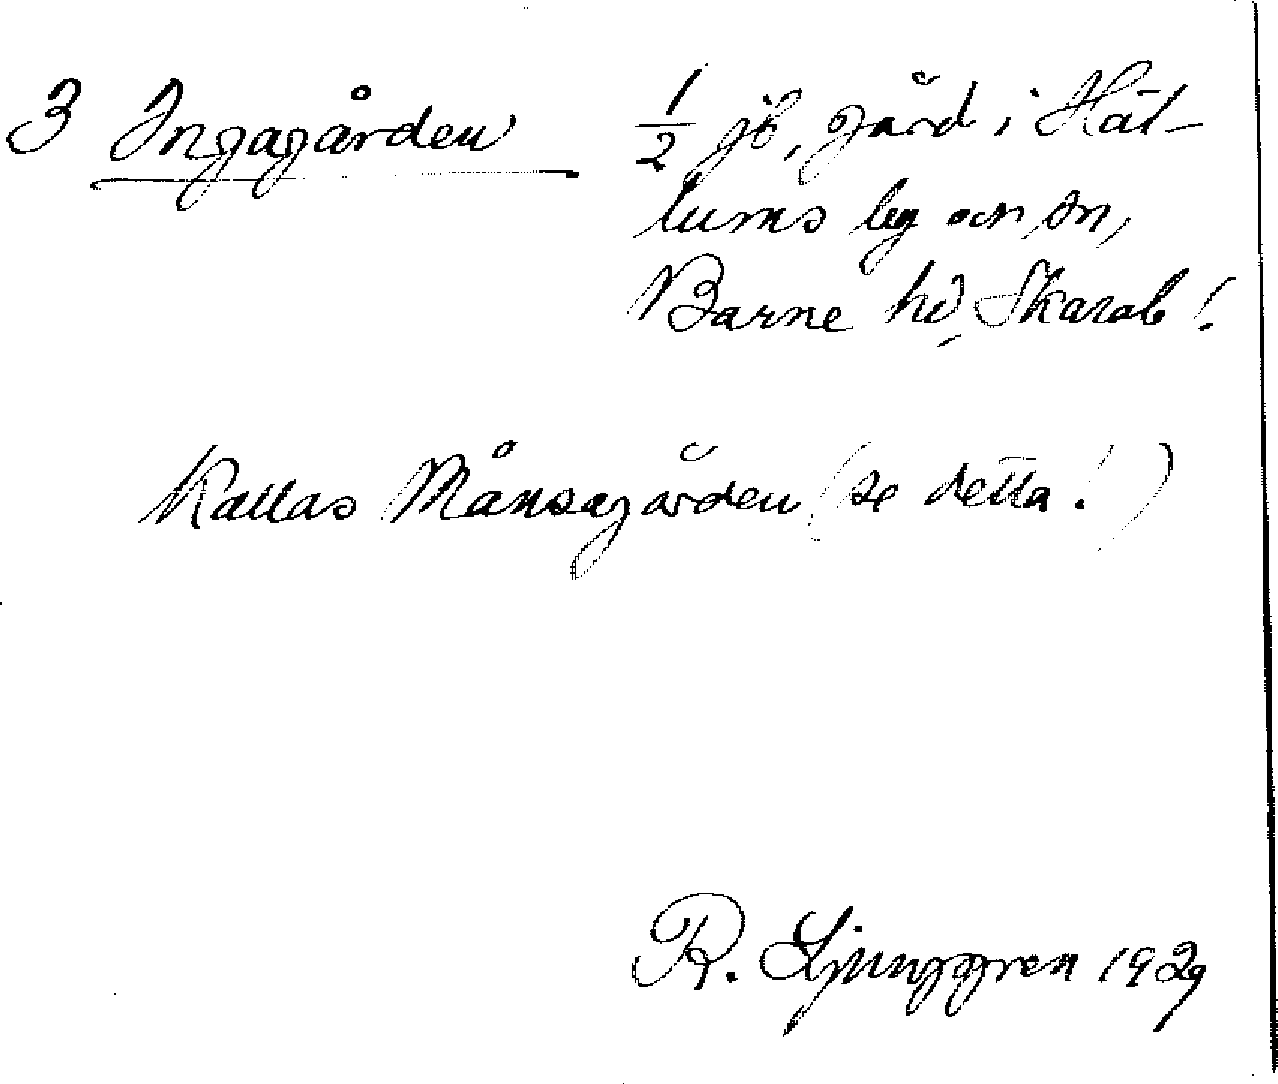 3 Ingagården 1/2 jb, gård i Hät-
lums by och sn,
Barne hd, Skarab!
Kallas Månsagården (se detta!)
R. Ljunggren 1929